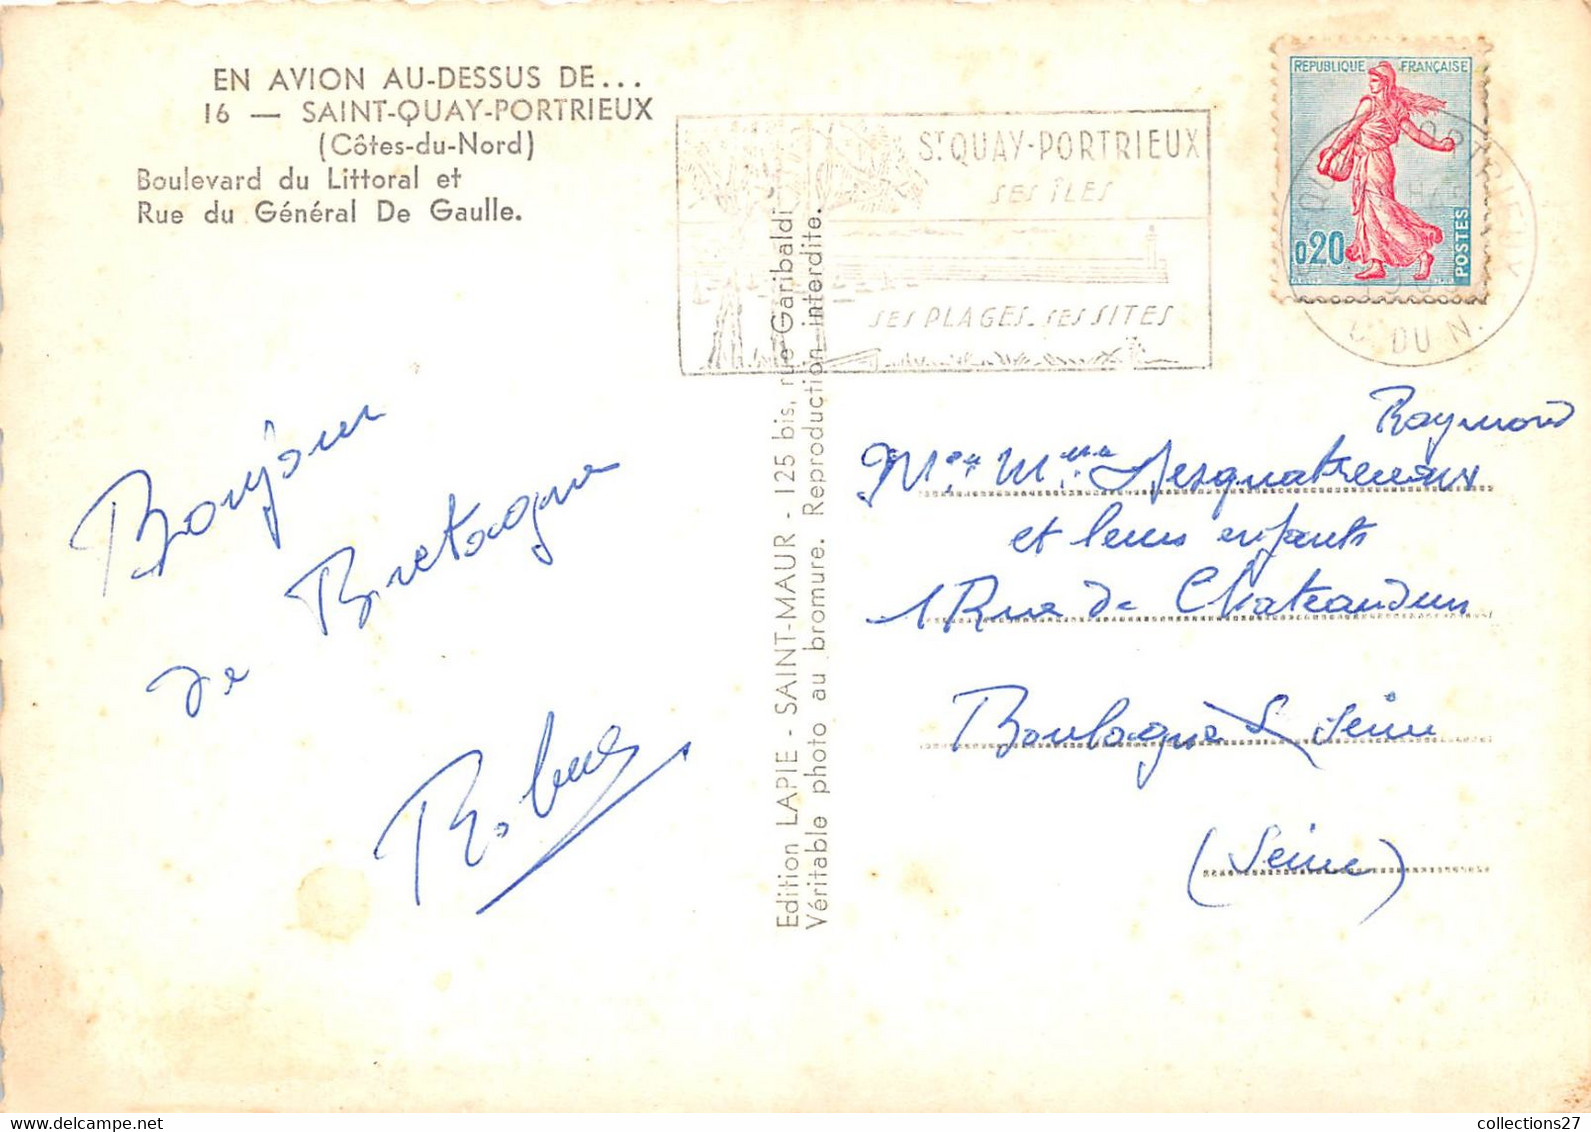 EN AVION AU-DESSUS DE...
16 — SAINT-QUAY-PORTRIEUX
(Côtes-du-Nord)
Boulevard du Littoral et
Rue du Général De Gaulle.
ST QUAY-PORTRIEUX
SES ÎLES
SES PLAGES. SES SITES
REPUBLIQUE FRANÇAISE
0,20
POSTES
QUAY PORTRIEUX
C. DU N.
Bonjour
de Bretagne
Edition LAPIE - SAINT-MAUR - 125 bis, rue Garibaldi
Véritable photo au bromure. Reproduction interdite.
Raymond
Mr et Mme Lesquatreaux
et leurs enfants
1 Rue de Chateaudun
Boulogne s/ Seine
(Seine)
collections27